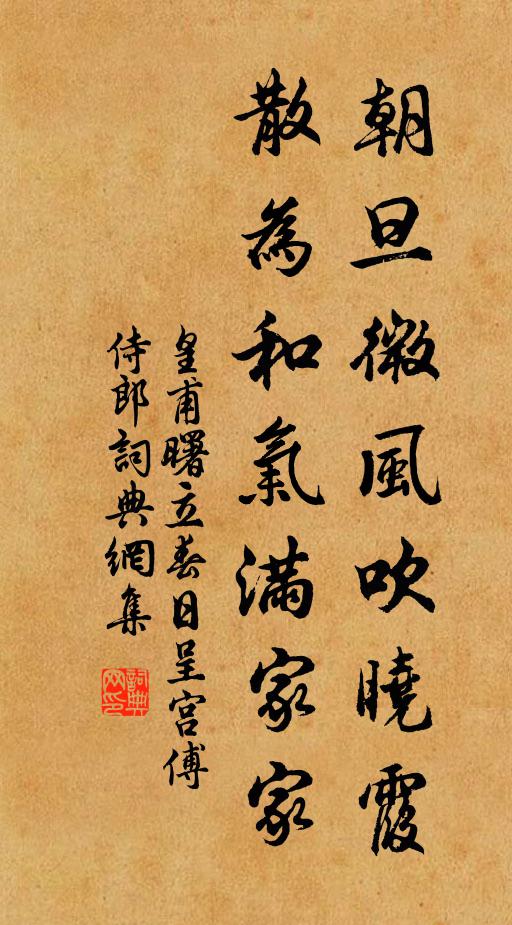 朝旦微風吹曉霞
散為和氣滿家家
皇甫曙立春日呈宮傅
侍郎詞典網集
詞典网印